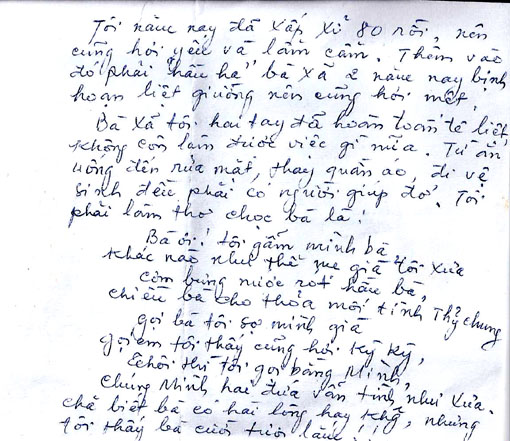 Tôi năm nay đã xấp xỉ 80 rồi, nên
cũng hơi yếu và lẩm cẩm. Thêm vào
đó phải "hầu hạ" bà xã 2 năm nay bịnh
hoạn liệt giường nên cũng hơi mệt,
Bà xã tôi hai tay đã hoàn toàn tê liệt
không còn làm được việc gì nữa. Từ ăn
uống đến rửa mặt, thay quần áo, đi vệ
sinh đều phải có người giúp đỡ. Tôi
phải làm thơ chọc bà là:
Bà ơi! tôi gẫm mình bà
Khác nào như thể mẹ già tôi xưa
Cơm bưng nước rót hầu bà,
Chiều bà cho thỏa mối tình thủy chung
Gọi bà tôi sợ mình già
Gọi em tôi thấy cũng hơi kỳ kỳ,
Thôi thì tôi gọi bằng Mình,
Chúng Mình hai đứa vẫn tình như xưa.
Chả biết bà có hài lòng hay không, nhưng
tôi thấy bà cười tươi lắm!!